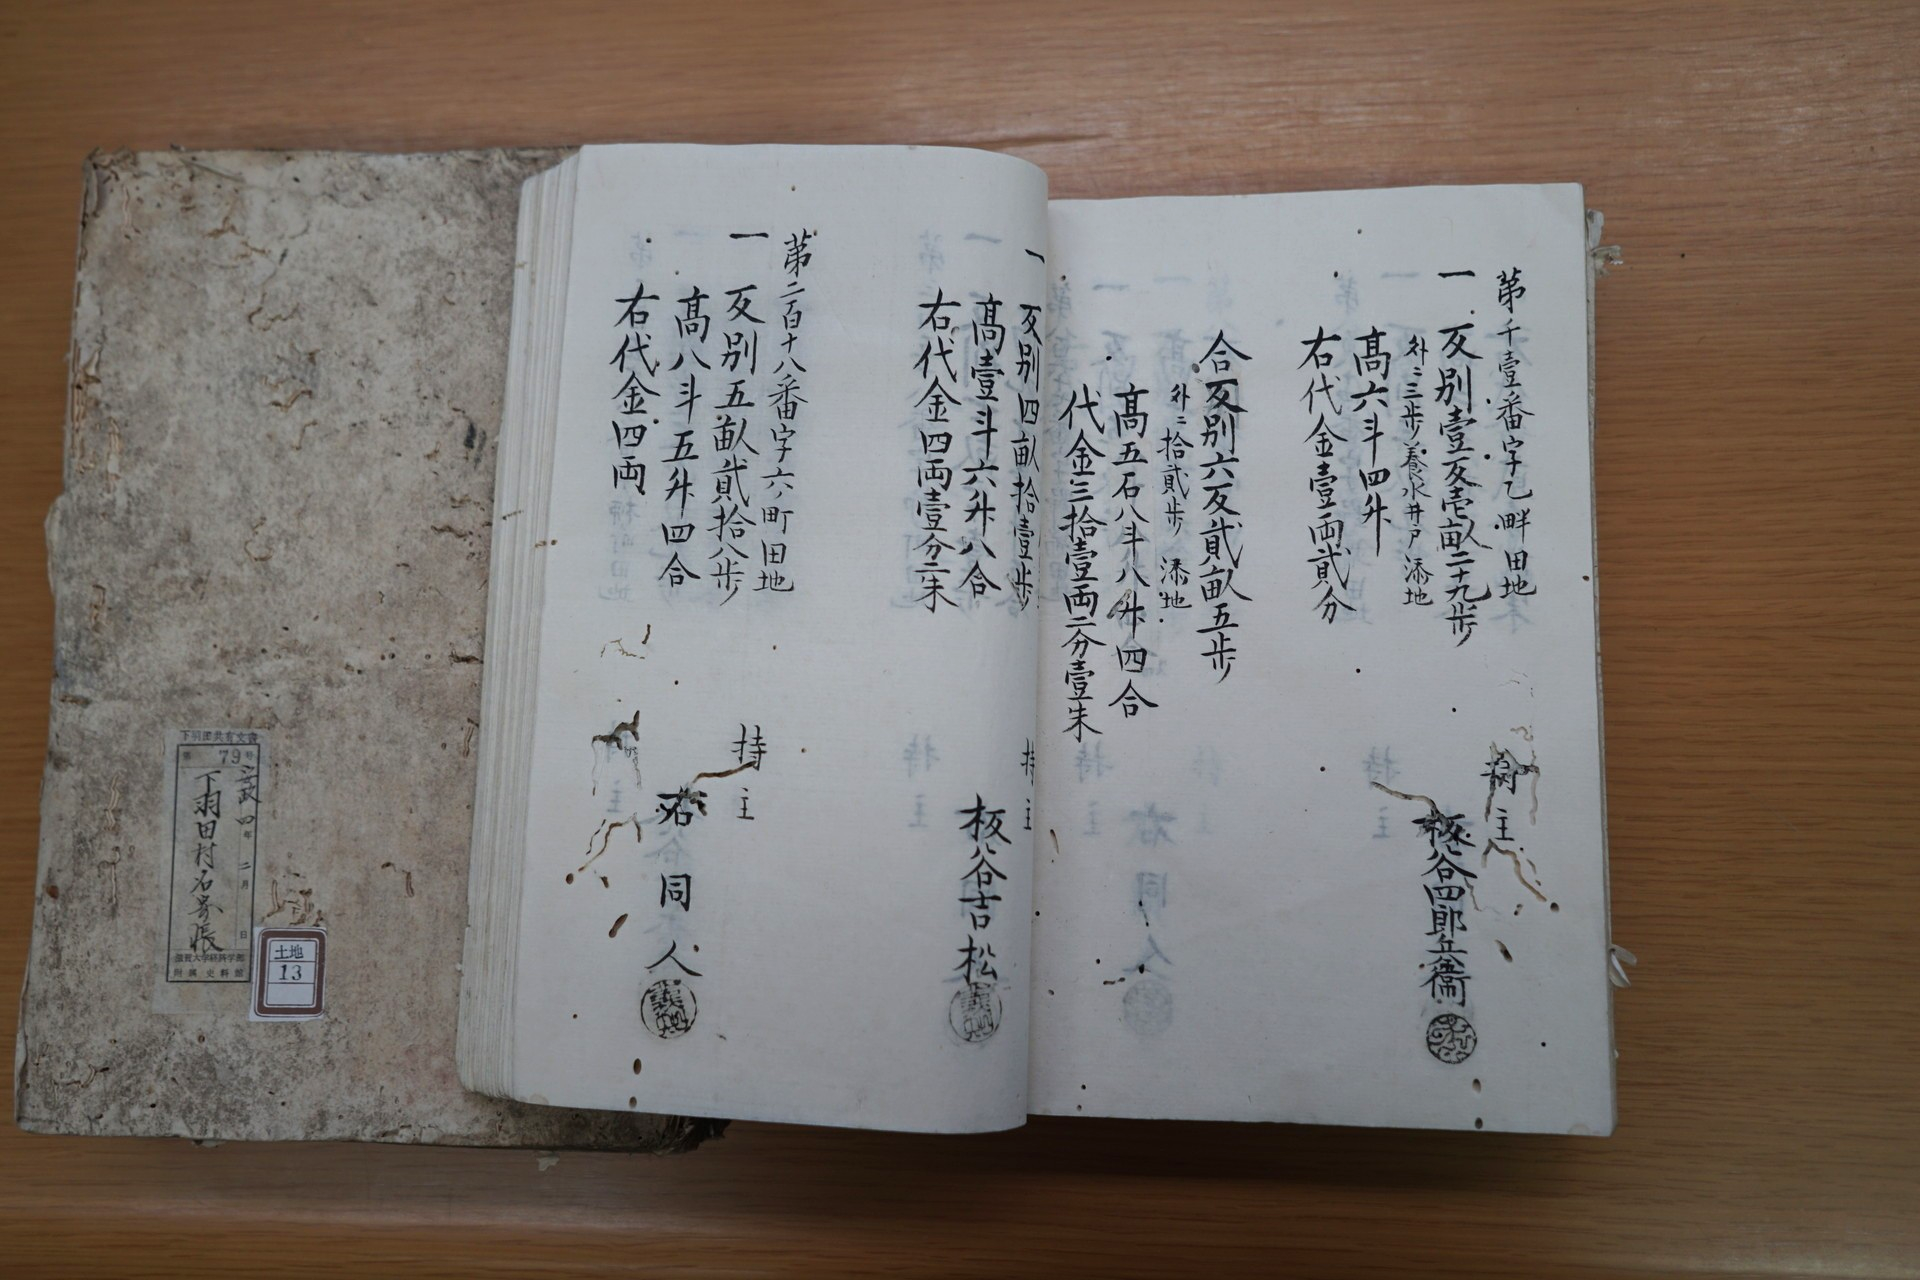 第千壹番字乙畔田地
一 反別壹反壱畝二十九歩
外ニ三歩養水井戸添地
高六斗四升
右代金壹両貳分
持主
板谷四郎兵衛
合反別六反貳畝五歩
外ニ拾貳歩 添地
高五石八斗八升四合
代金三拾壹両二分壹朱
一 反別四畝拾壹歩
高壹斗六升八合
右代金四両壹分二朱
持主
板谷吉松
第二百十八番字六ノ町田地
一 反別五畝貳拾八歩
高八斗五升四合
右代金四両
持主
右同人
下羽田共有文書
第79号
安政四年二月 日
下羽田村名寄帳
滋賀大学経済学部
附属史料館
土地
13